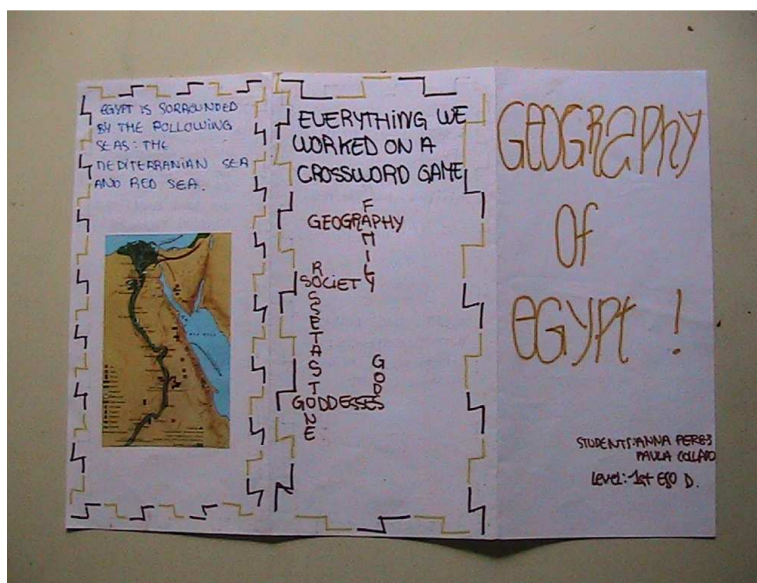 EGYPT IS SORROUNDED
BY THE FOLLOWING
SEAS: THE
MEDITERRANIAN SEA
AND RED SEA.
EVERYTHING WE
WORKED ON A
CROSSWORD GAME
FAMILY
GEOGRAPHY
ROSSETASTONE
SOCIETY
GODS
GODDESSES
GEOGRAPHY
OF
EGYPT !
STUDENTS: ANNA
PAULA COLLADO
Level: 1st ESO D.